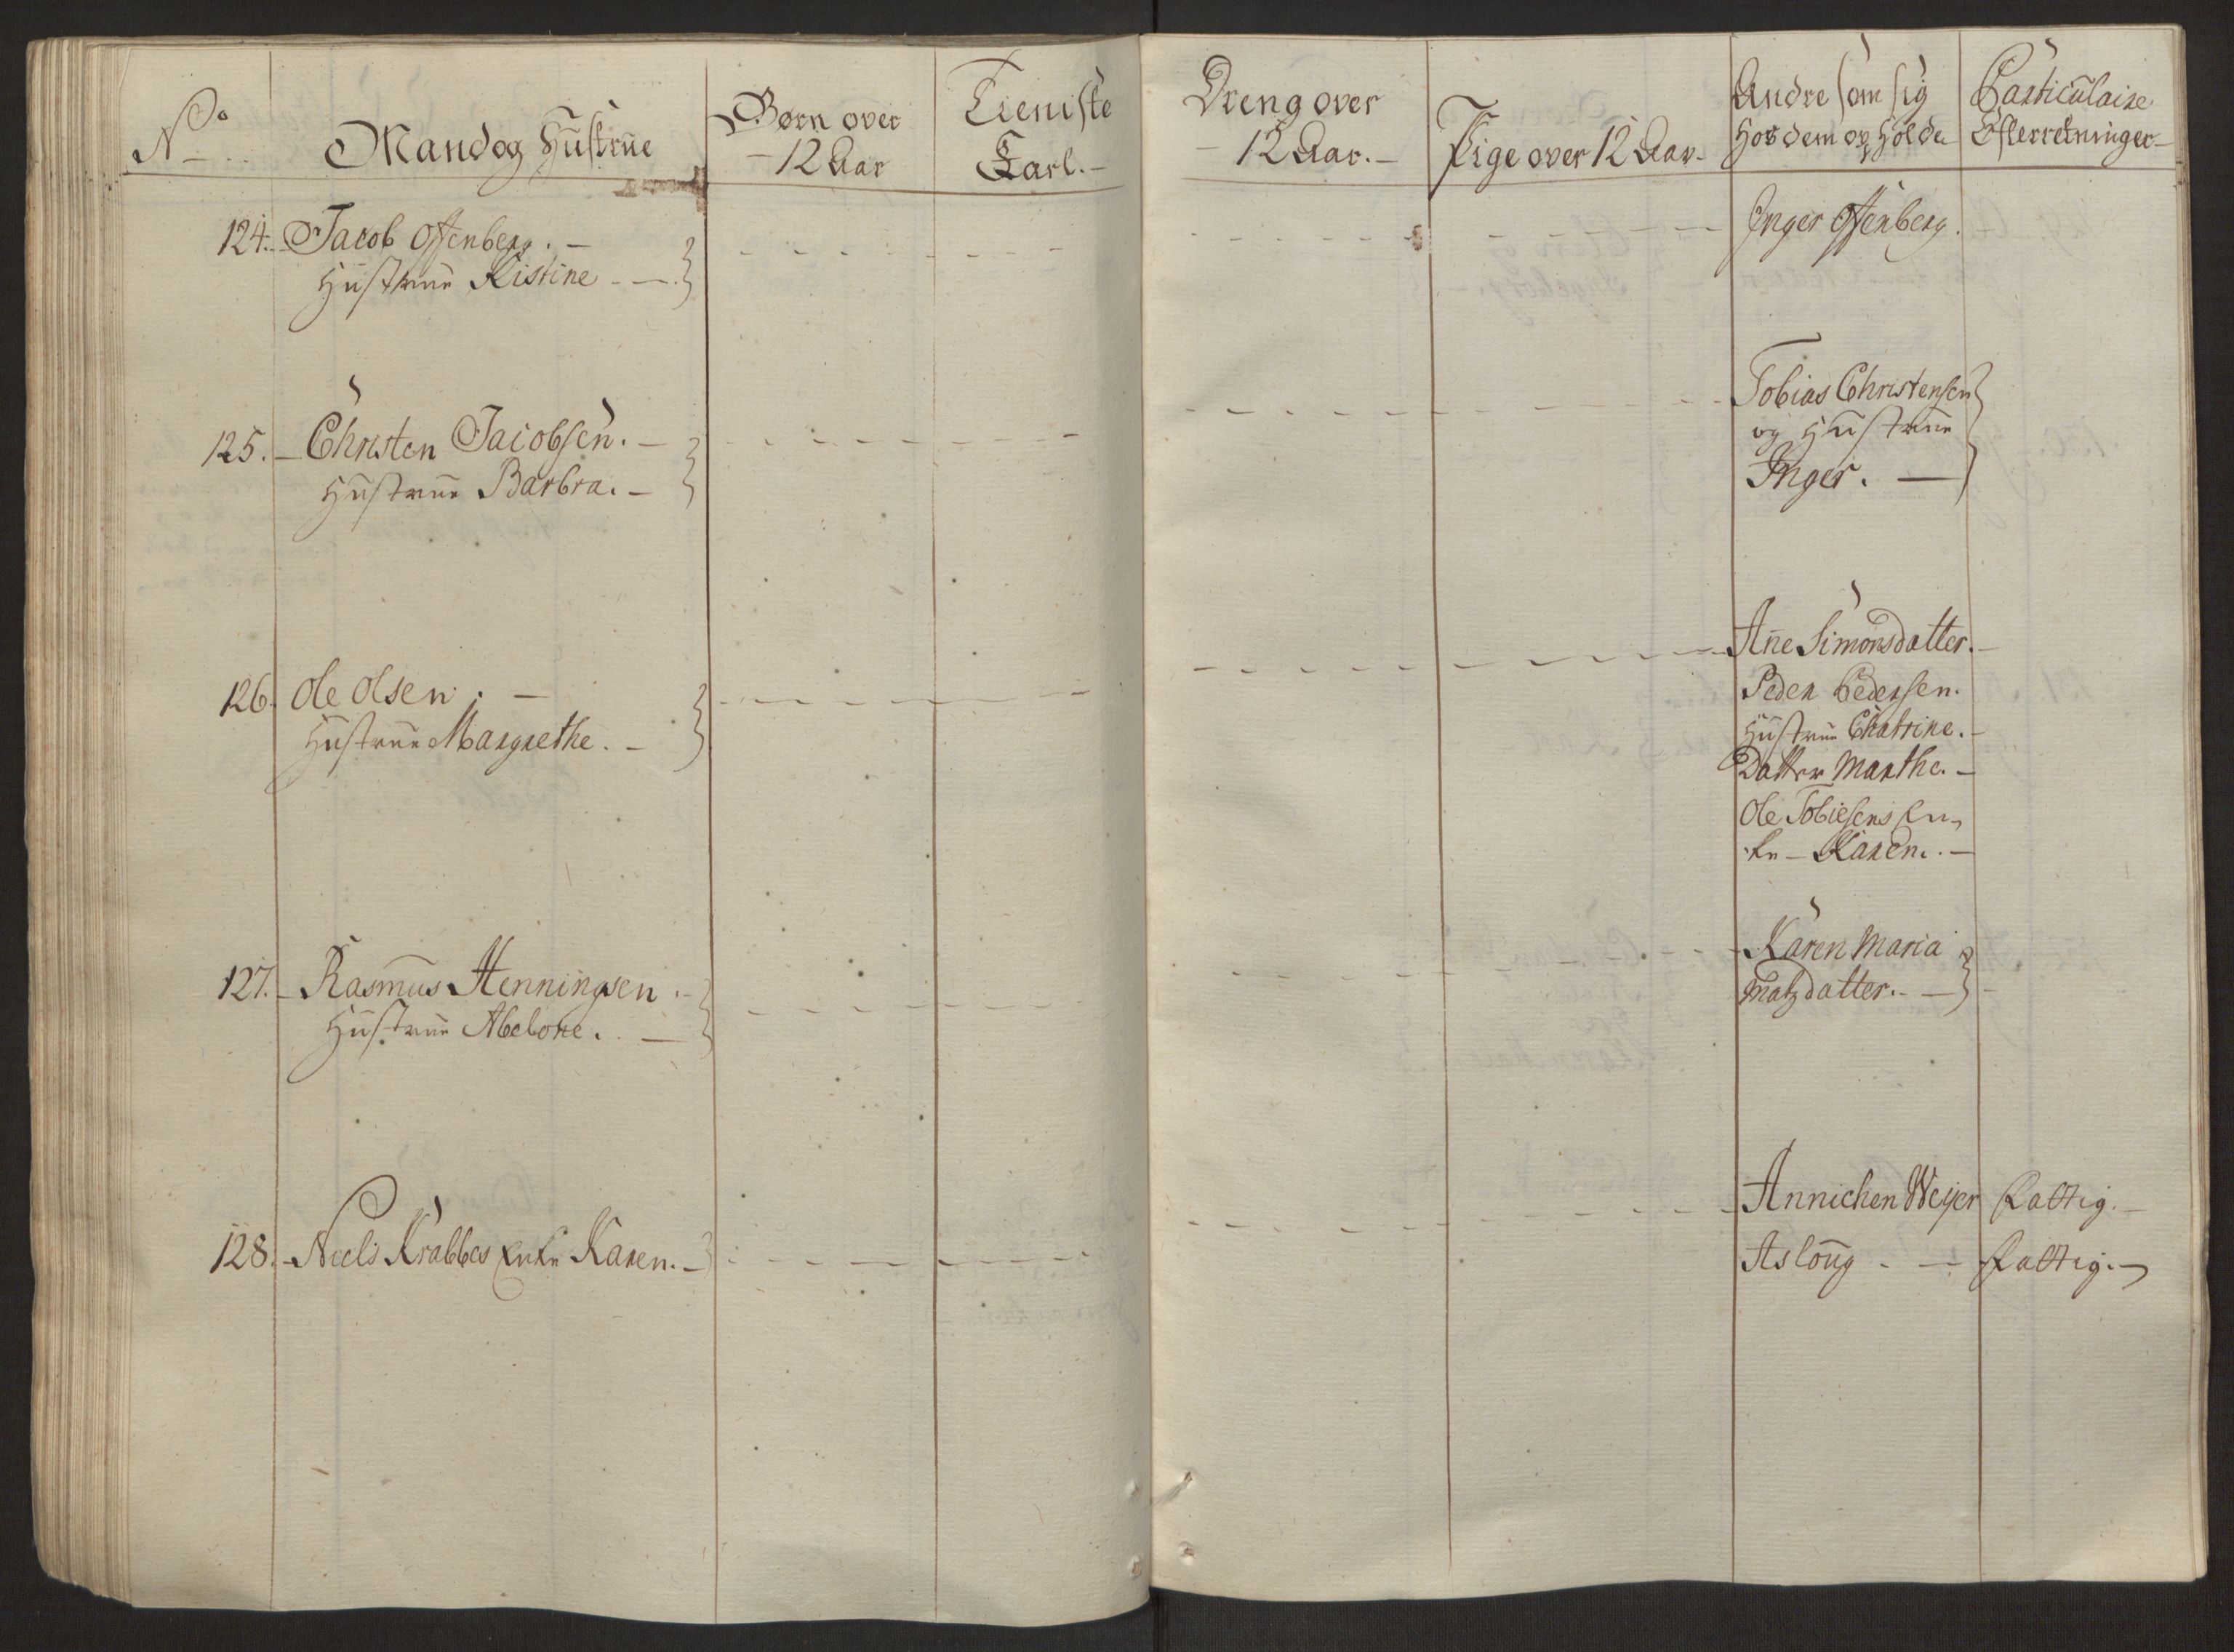 No
Mand og Hustrue
Børn over
12 Aar
Tieniste
Karl.
Dreng over
12 Aar.
Pige over 12 Aar.
Andre som sig
Hos dem op holde
Particulaire
Efterretninger
124. Jacob Offenberg.
Hustrue Kistine
Inger Offenberg.
125. Christen Jacobsen.
Hustrue Barbra.
Tobias Christensen
og Hustrue
Inger.
126. Ole Olsen.
Hustrue Margrethe.
Ane Simonsdatter.
Peder Pedersen.
Hustrue Chatrine.
Datter Marthe.
Ole Tobiesens En-
ke Karen.
127. Rasmus Henningsen.
Hustrue Abelone.
Karen Maria
Matzdatter.
128. Niels Krabbes Enke Karen.
Annichen Weyer fattig.
Asloug fattig.